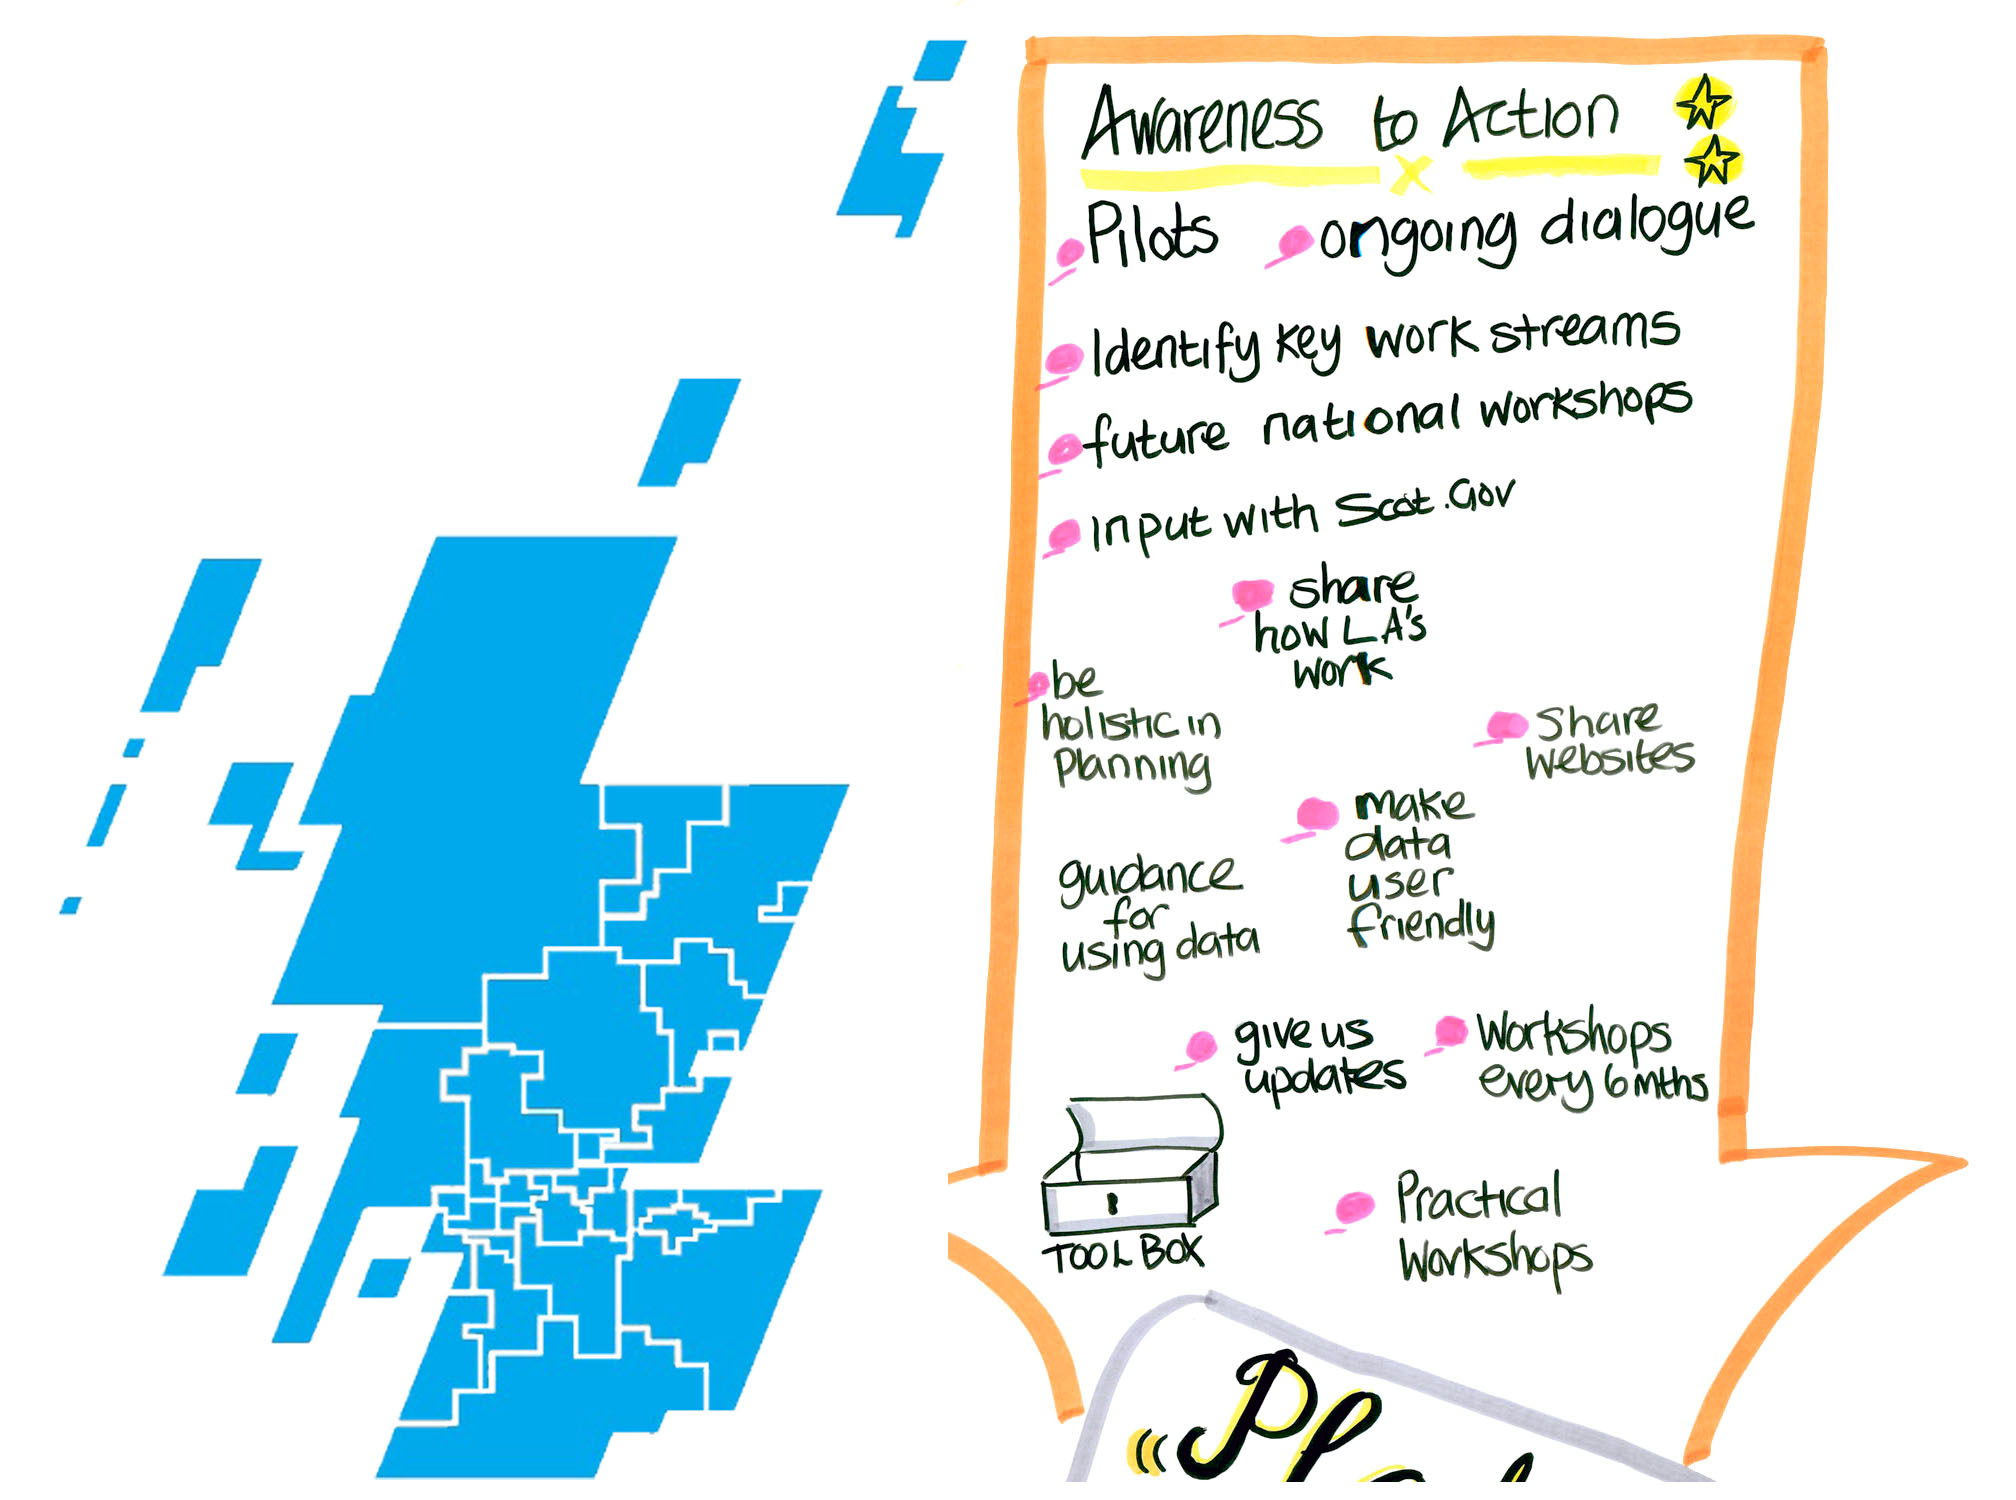 Awareness to Action
Pilots ongoing dialogue
Identify key work streams
future national workshops
input with Scot.Gov
share
how LA's
work
be
holistic in
Planning
Share
websites
make
data
user
friendly
guidance
for
using data
give us
updates
Workshops
every 6 mths
TOOL BOX
Practical
Workshops